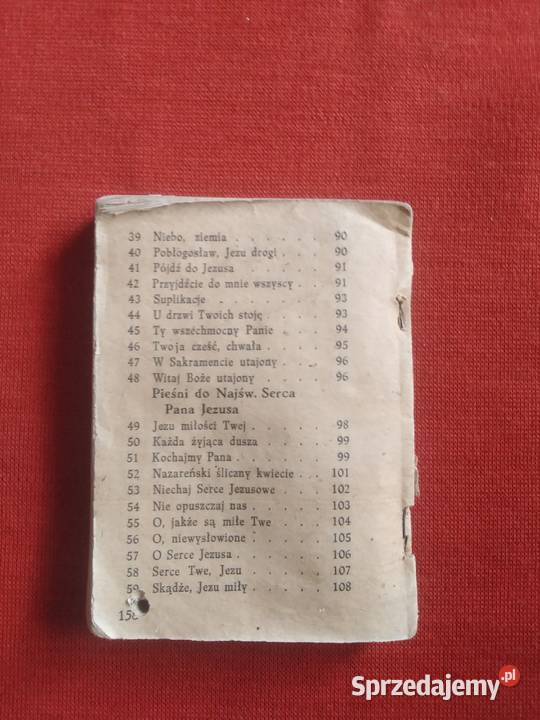 39 Niebo, ziemia . . . . . . 90
40 Pobłogosław, Jezu drogi . . . 90
41 Pójdź do Jezusa . . . . . 91
42 Przyjdźcie do mnie wszyscy . . 91
43 Suplikacje . . . . . . . 93
44 U drzwi Twoich stoję . . . . 93
45 Ty wszechmocny Panie . . . 94
46 Twoja cześć, chwała . . . . 95
47 W Sakramencie utajony . . . 96
48 Witaj Boże utajony . . . . 96
Pieśni do Najśw. Serca
Pana Jezusa
49 Jezu miłości Twej . . . . . 98
50 Każda żyjąca dusza . . . . 99
51 Kochajmy Pana . . . . . . 99
52 Nazareński śliczny kwiecie . . 101
53 Niechaj Serce Jezusowe . . . 102
54 Nie opuszczaj nas . . . . . 103
55 O, jakże są miłe Twe . . . . 104
56 O, niewysłowione . . . . . 105
57 O Serce Jezusa . . . . . . 106
58 Serce Twe, Jezu . . . . . 107
59 Skądże, Jezu miły . . . . . 108
158
Sprzedajemy.pl